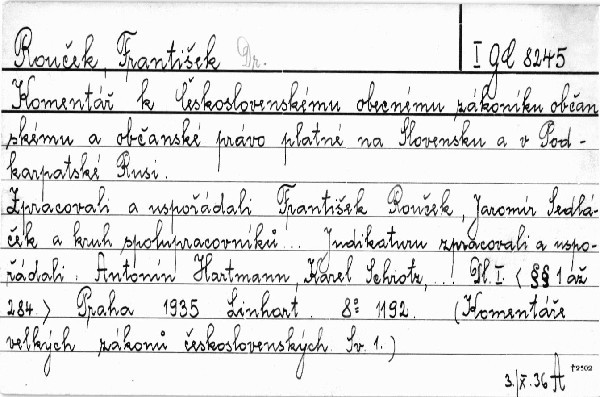 Rouček, František Dr. I gd 8245
Komentář k Československému obecnému zákoníku občan
skému a občanské právo platné na Slovensku a v Pod-
karpatské Rusi.
Zpracovali a uspořádali František Rouček, Jaromír Sedlá-
ček a kruh spolupracovníků... Judikaturu zpracovali a uspo-
řádali. Antonín Hartmann, Karel Schrotz,... Dl. I. < §§ 1 až
284.> Praha 1935 Linhart. 8° 1192. (Komentáře
velkých zákonů československých. Sv. 1.)
3./X. 36 A